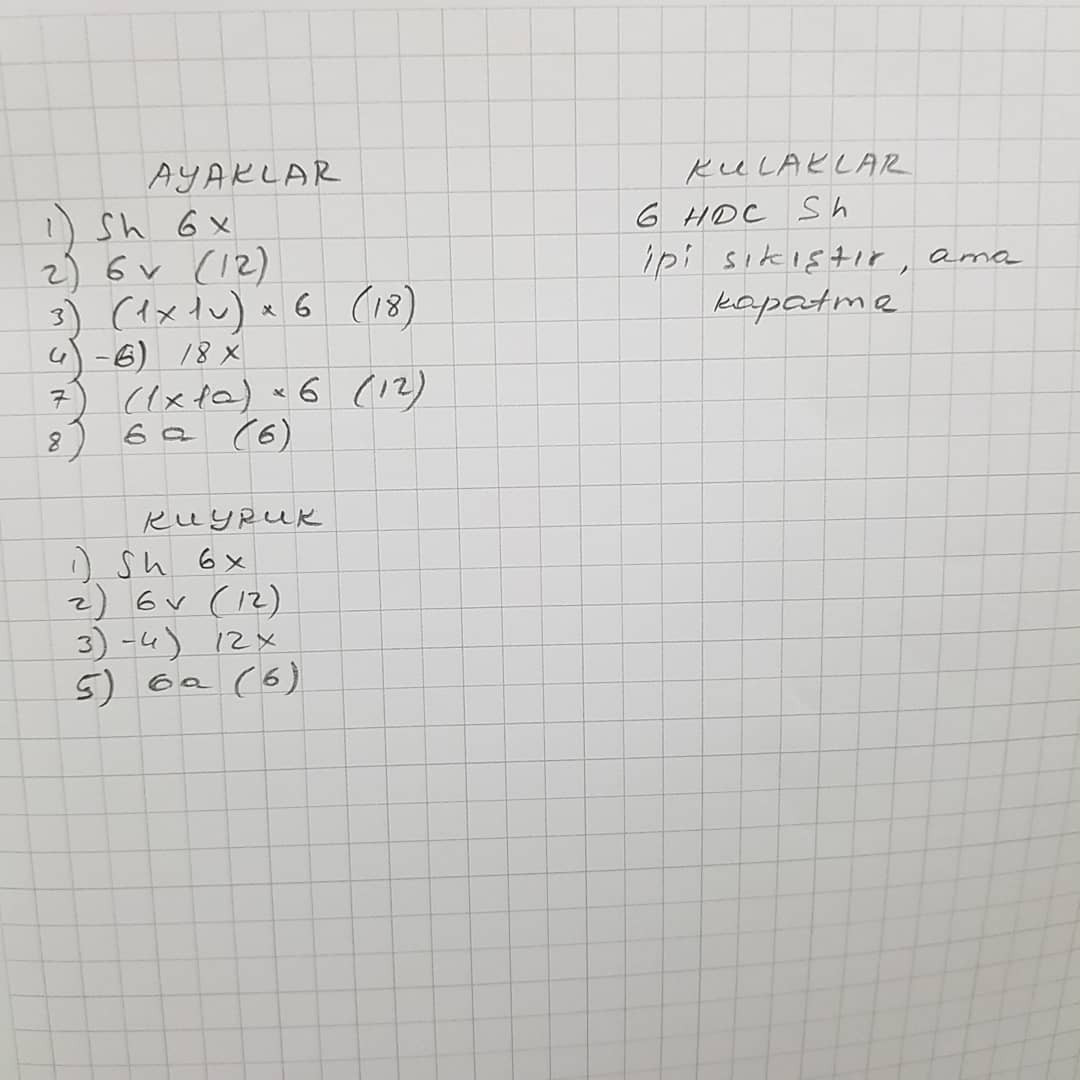 AYAKLAR
1) Sh 6x
2) 6v (12)
3) (1x1v) × 6 (18)
4) -6) 18x
7) (1x1a) × 6 (12)
8) 6a (6)
KUYRUK
1) Sh 6x
2) 6v (12)
3) -4) 12x
5) 6a (6)
KULAKLAR
6 HDC Sh
ipi sıkıştır, ama
kapatma